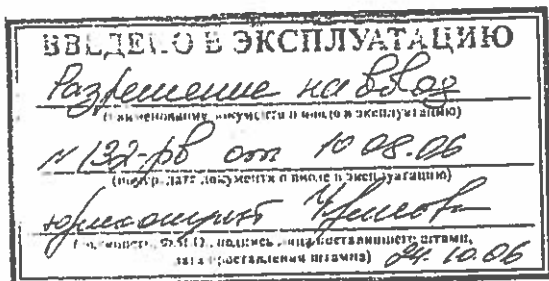 ВВЕДЕНО В ЭКСПЛУАТАЦИЮ
Разрешение на ввод
(наименование документа о вводе в эксплуатацию)
N 132-рв от 10.08.06
(номер, дата документа о вводе в эксплуатацию)
юрисконсульт
(должность, Ф.И.О., подпись лица поставившего штамп,
дата проставления штампа) 24.10.06